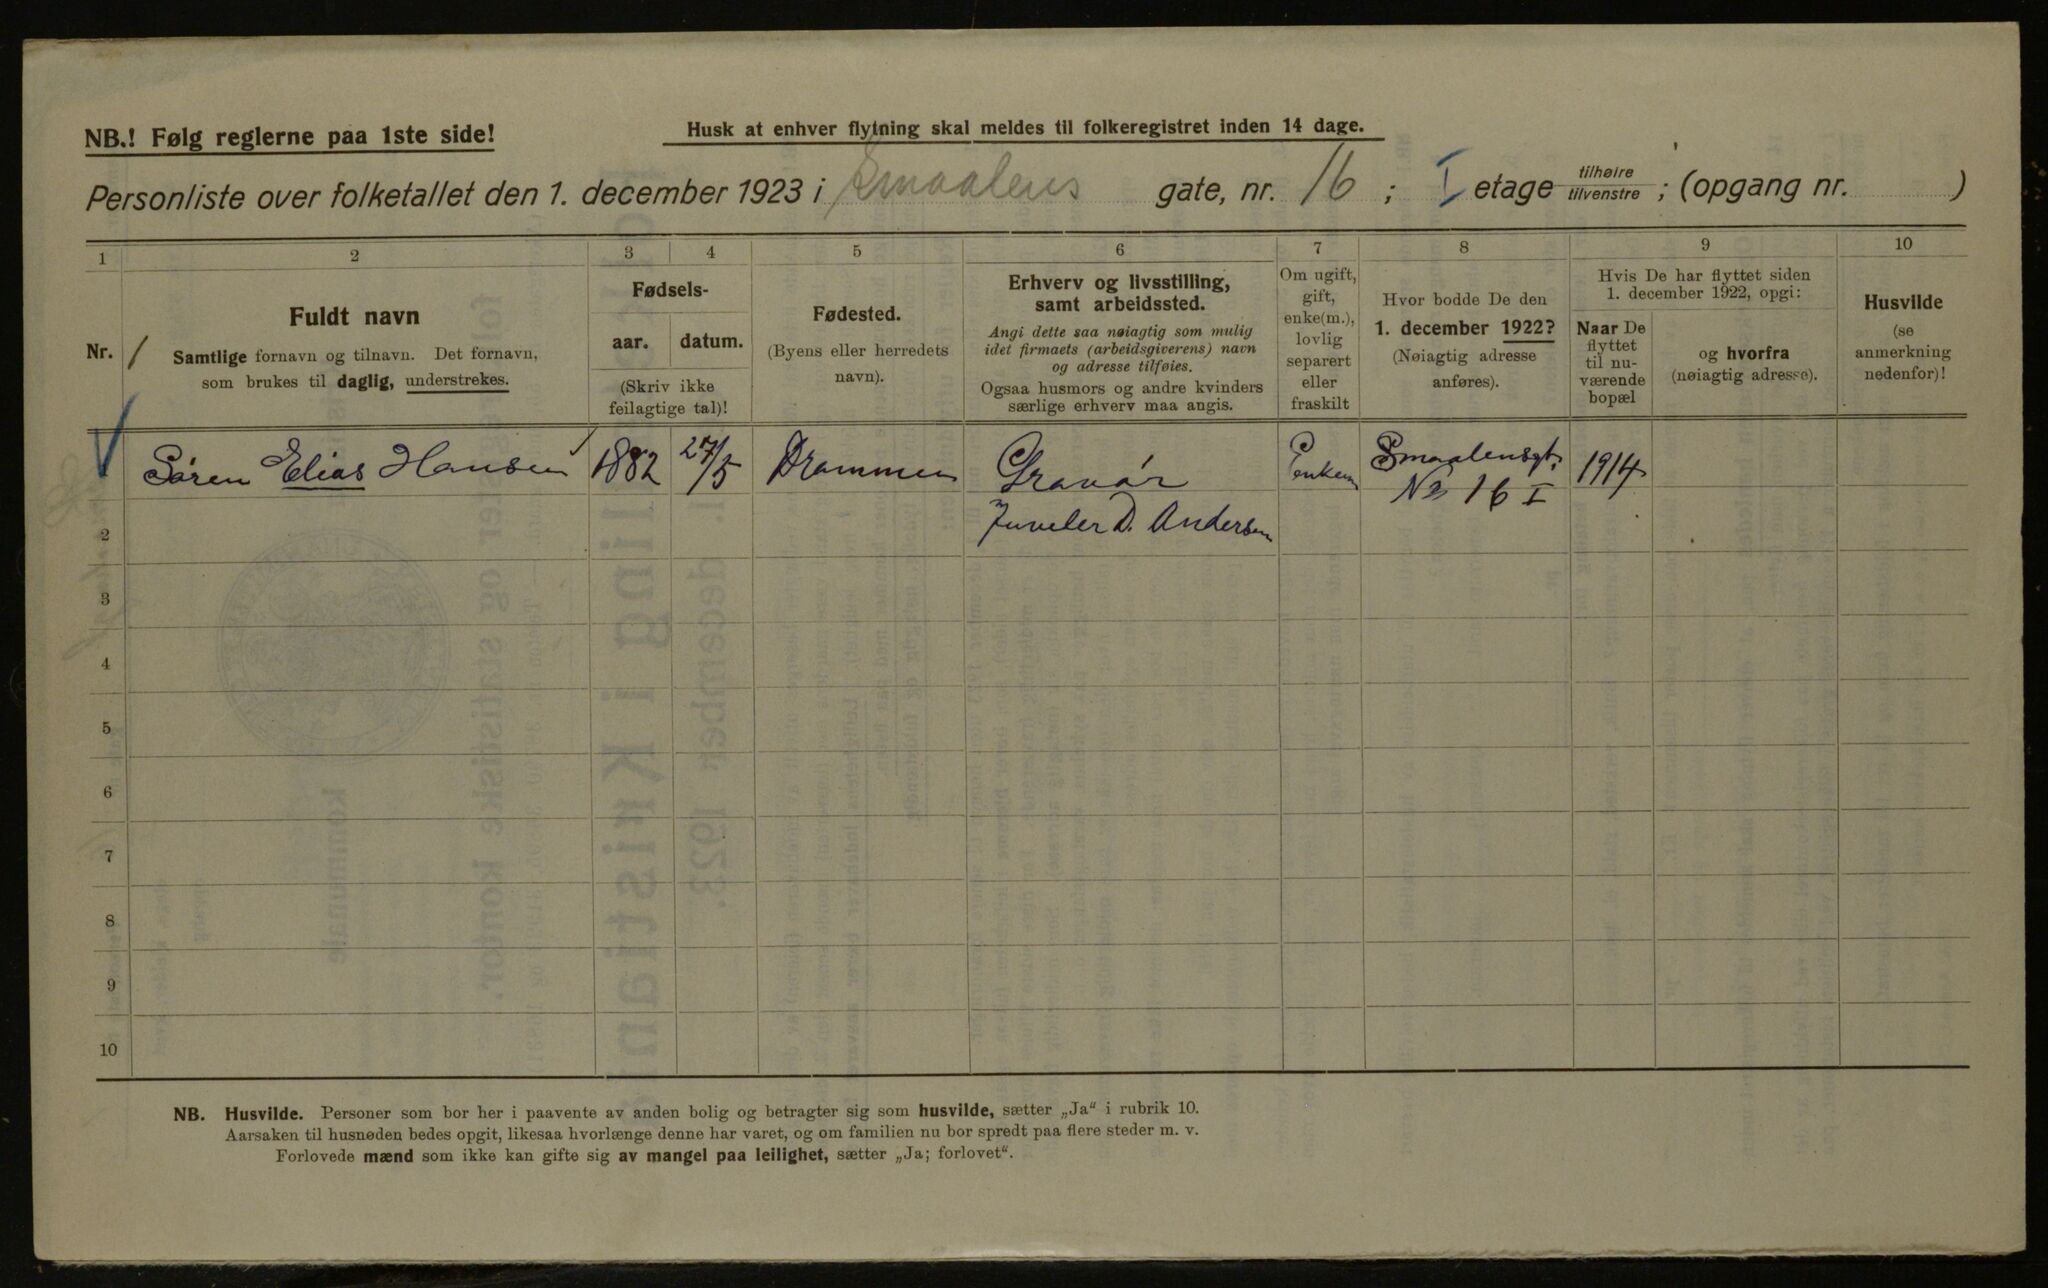 NB.! Følg reglerne paa 1ste side!
Husk at enhver flytning skal meldes til folkeregistret inden 14 dage.
Personliste over folketallet den 1. december 1923 i Smaalens gate, nr. 16 ; I etage tilhøire tilvenstre ; (opgang nr. )
1 2 3 4 5 6 7 8 9 10
Nr. 1
Fuldt navn
Samtlige fornavn og tilnavn. Det fornavn,
som brukes til daglig, understrekes.
Fødsels-
aar. datum.
(Skriv ikke
feilagtige tal)!
Fødested.
(Byens eller herredets
navn).
Erhverv og livsstilling,
samt arbeidssted.
Angi dette saa nøiagtig som mulig
idet firmaets (arbeidsgiverens) navn
og adresse tilføies.
Ogsaa husmors og andre kvinders
særlige erhverv maa angis.
Om ugift,
gift,
enke(m.),
lovlig
separert
eller
fraskilt
Hvor bodde De den
1. december 1922?
(Nøiagtig adresse
anføres).
Hvis De har flyttet siden
1. december 1922, opgi:
Naar De
flyttet
til nu-
værende
bopæl
og hvorfra
(nøiagtig adresse).
Husvilde
(se
anmerkning
nedenfor)!
Søren Elias Hansen 1882 27/5 Drammen Gravør Enkem Smaalensgt. 1914
No 16 I
2 Juveler D. Andersen
3
4
5
6
7
8
9
10
NB. Husvilde. Personer som bor her i paavente av anden bolig og betragter sig som husvilde, sætter „Ja“ i rubrik 10.
Aarsaken til husnøden bedes opgit, likesaa hvorlænge denne har varet, og om familien nu bor spredt paa flere steder m. v.
Forlovede mænd som ikke kan gifte sig av mangel paa leilighet, sætter „Ja; forlovet“.